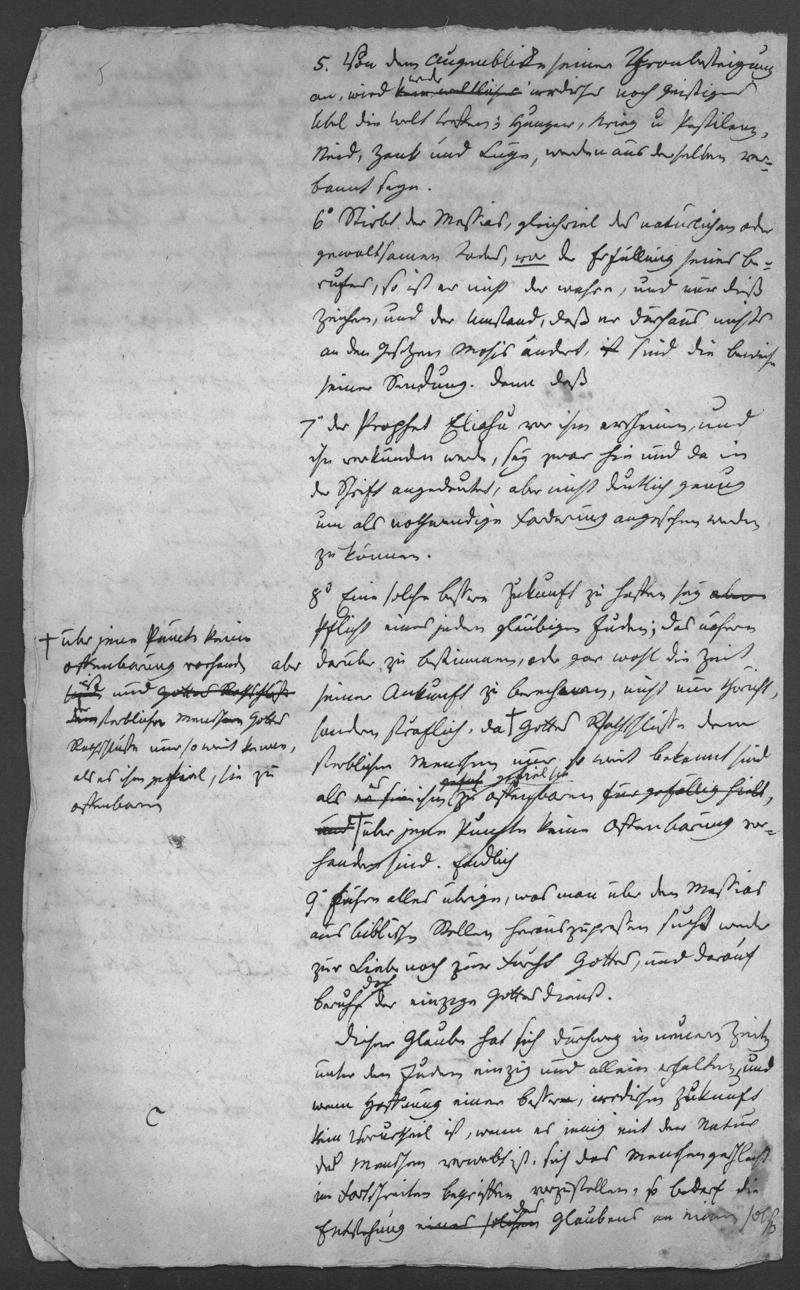 5. Von dem Augenblicke seiner Thronbesteigung
an, wird weder irrdisches noch geistiges
Übel die Welt treffen; Hunger, Krieg u Pestilenz,
Neid, Zank und Lüge, werden aus derselben ver-
bannt seyn.
6° Stirbt der Messias, gleichviel des natürlichen oder
gewaltsamen Todes, vor der Erfüllung seines Be-
rufes, so ist er nicht der wahre, und nur dieß
Zeichen, und der Umstand, daß er durchaus nichts
an den Gesetzen Mosis ändert, ist sind die Beweise
seiner Sendung. Denn daß
7° der Prophet Eliahu vor ihm erscheinen, und
ihn verkünden werde, sey zwar hin und da in
der Schrift angedeutet, aber nicht deutlich genug
um als nothwendige Foderung angesehen werden
zu können.
8° Eine solche bessere Zukunft zu hoffen sey aber
Pflicht eines jeden gläubigen Juden; das nähere
darüber zu bestimmen, oder gar wohl die Zeit
seiner Ankunft zu berechnen, nicht nur thöricht,
sondern sträflich, da † Gottes Rathschlüsse dem
sterblichen Menschen nur so weit bekannt sind
als es ihm zu offenbaren für gefällig hielt,
und über jene Punkte keine Offenbarung vor-
handen sind. Endlich
9° führe alles übrige, was man über den Messias
aus biblischen Stellen herauszupressen sucht weder
zur Liebe noch zur Furcht Gottes, und darauf
beruht doch der einzige Gottesdienst.
Dieser Glaube hat sich durchweg in neuern Zeiten
unter den Juden einzig und allein erhalten, und
wenn Hoffnung einer bessern, irrdischen Zukunft
kein Vorurtheil ist, wenn es innig mit der Natur
des Menschen verwebt ist, sich das Menschengeschlecht
im Fortschreiten begriffen vorzustellen, so bedarf die
Entstehung eines solchen des Glaubens an einen solch
† über jene Puncte keine
Offenbarung vorhanden aber
ist und Gottes Rathschlüsse
sterbliche Menschen Gottes
Rathschlüsse nur so weit kennen,
als es ihm gefiel, sie zu
offenbaren